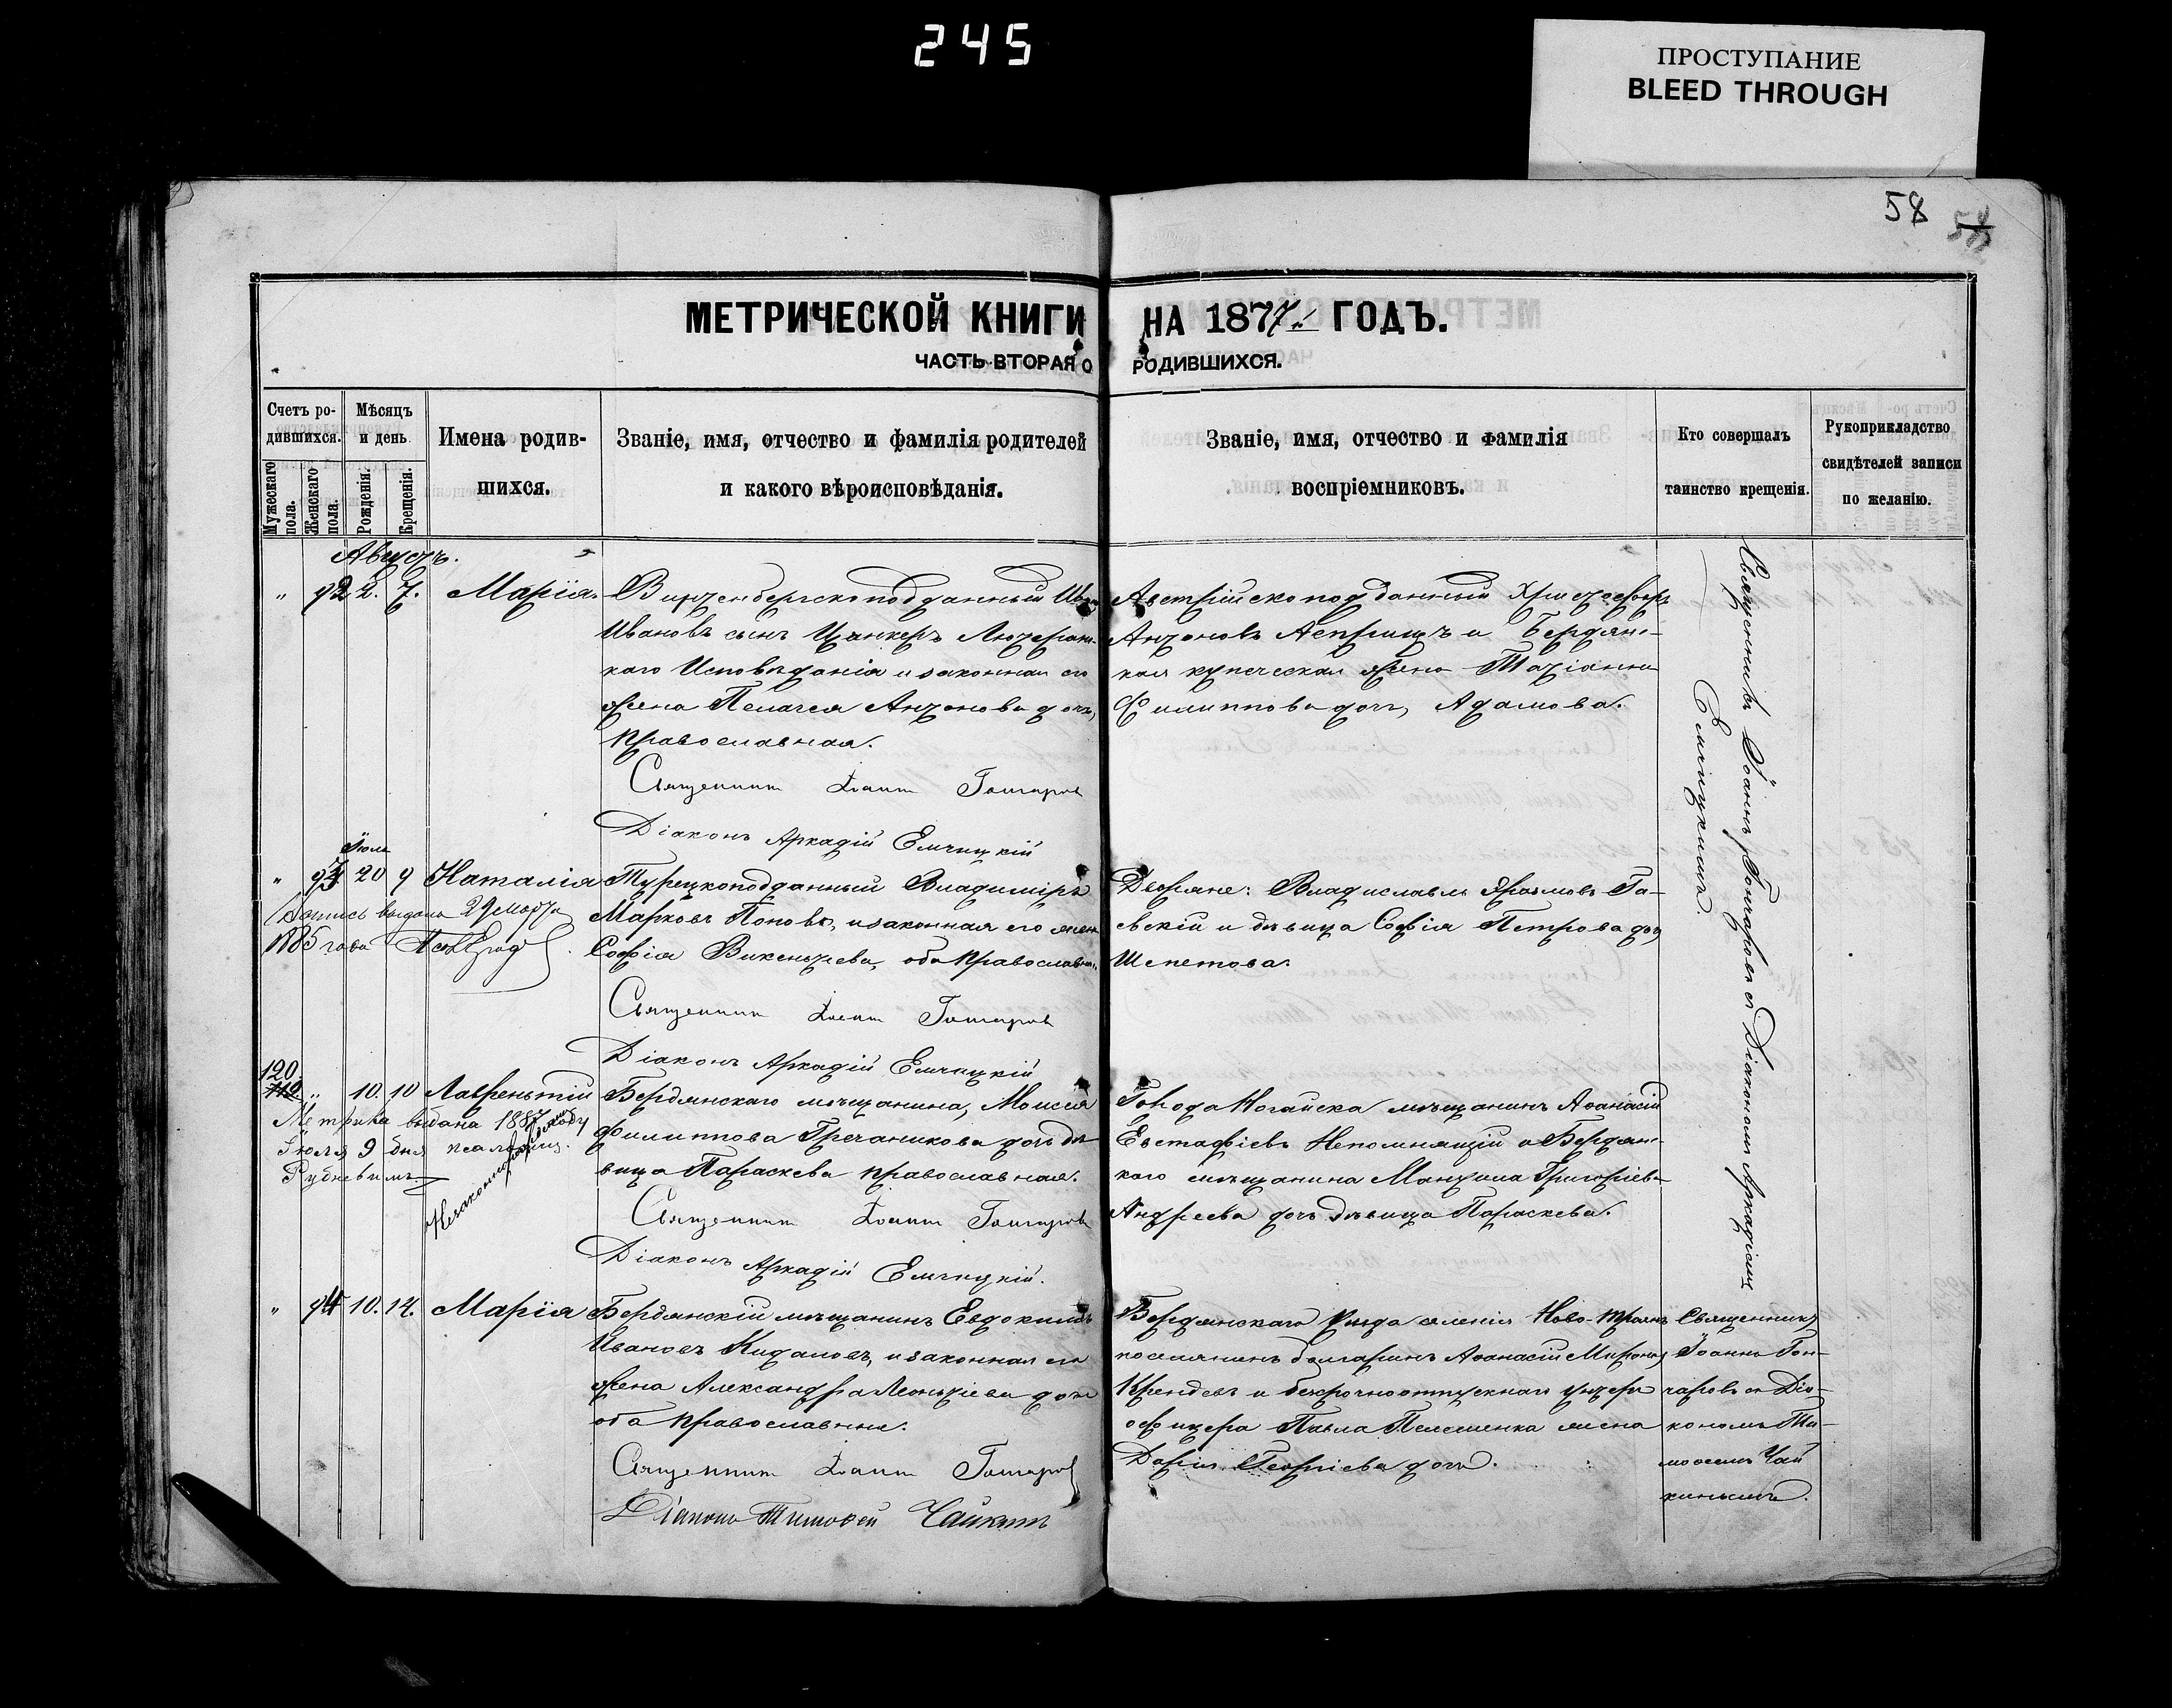 245
ПРОСТУПАНИЕ
BLEED THROUGH
58
МЕТРИЧЕСКОЙ КНИГИ НА 1877 ГОДЪ.
ЧАСТЬ ВТОРАЯ О РОДИВШИХСЯ.
Счетъ ро-
дившихся.
Мужескаго
пола.
Женскаго
пола.
Мѣсяцъ
и день
Рожденія.
Крещенія.
Имена родив-
шихся.
Званіе, имя, отчество и фамилія родителей
и какого вѣроисповѣданія.
Званіе, имя, отчество и фамилія
воспріемниковъ.
Кто совершалъ
таинство крещенія.
Рукоприкладство
свидѣтелей записи
по желанію.
Августъ.
" 92 2. 7. Марія.
Виртенбергскоподданный
Ивановъ сынъ Цанкеръ Лютеранс-
каго Исповѣданія и законная его
жена Пелагея Антонова дочь,
Православная.
Священник Иоанн Гончаров
Діаконъ Аркадій Емчицкій
Австрійскоподданный Христофоръ
Антоновъ и Бердянс-
кая купеческая жена Татіанна
Филиппова дочь, Адамова.
Священникъ Іоаннъ Гончаровъ съ Діакономъ Аркадіемъ
Емчицкимъ.
Іюля
" 93 20 9 Наталія
выдана 29 марта
1885 года
Турецкоподданный Владиміръ
Марковъ Поповъ, и законная его жена
Софія Викентьева, оба Православн.
Священник Иоанн Гончаров
Діаконъ Аркадій Емчицкій
Дворяне: Владиславъ Га-
евскій и дѣвица Софія Петрова дочь
Шепетова.
120.
112 " 10. 10 Лаврентій
Метрика выдана 1887 году
Іюля 9 дня псаломщ.
Рубневымъ
Бердянскаго мѣщанина, Моисея
Филиппова Гречаникова дочь дѣ-
вица Параскева православная.
Священник Иоанн Гончаров
Діаконъ Аркадій Емчицкій.
Города Ногайска мѣщанинъ Аѳанасій
Евстафіевъ Непомнящій и Бердянс-
каго мѣщанина Григоріева
Андреева дочь дѣвица Параскева.
" 94 10. 14. Марія
Бердянскій мѣщанинъ Евдокимъ
Ивановъ Кидаловъ, и законная его
жена Александра Леонтіева дочь
оба Православные.
Священник Иоанн Гончаров
Діаконъ Тимоѳей Чайкинъ
Бердянскаго уѣзда селенія Ново-Троянъ
поселянинъ болгаринъ Аѳанасій Мироновъ
и безсрочноотпускнаго унтеръ
офицера Павла жена
Дарія Георгіева дочь.
Священникъ
Іоаннъ Гон-
чаровъ съ Діа-
кономъ Ти-
моѳеемъ Чай
кинымъ.